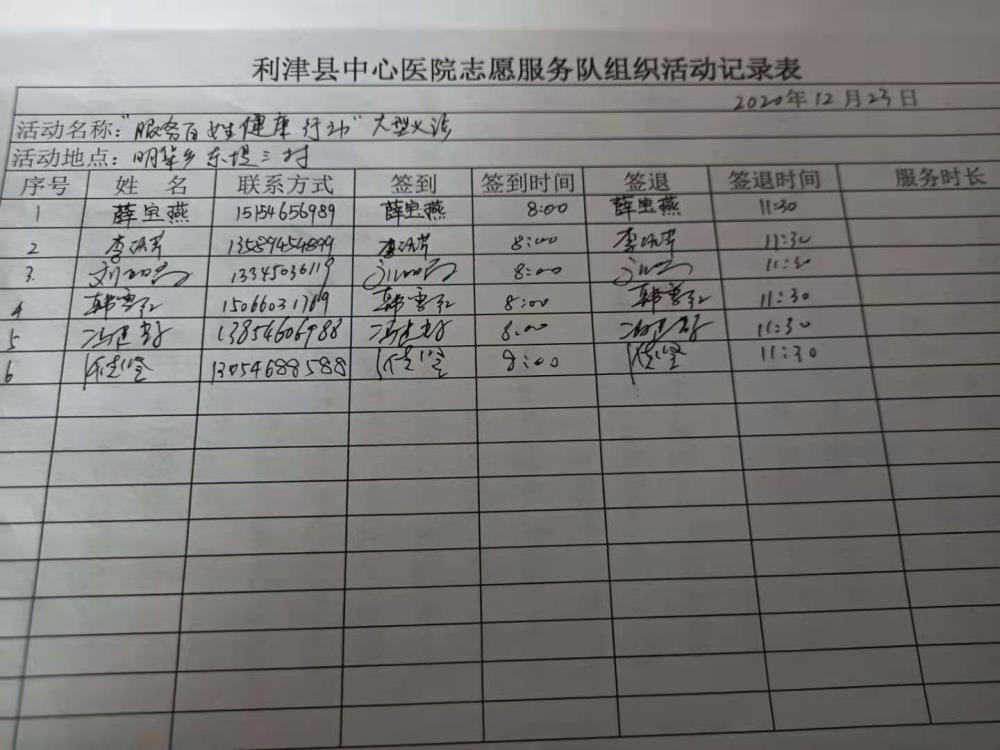 利津县中心医院志愿服务队组织活动记录表
2020年12月23日
活动名称："服务百姓健康行动"大型义诊
活动地点：明集乡东堤三村
序号 姓名 联系方式 签到 签到时间 签退 签退时间 服务时长
1 薛宝燕 15154656989 薛宝燕 8:00 薛宝燕 11:30
2 13589454899 8:00 11:30
3. 13345036119 8:00 11:30
4 韩雪红 15066031769 韩雪红 8:00 韩雪红 11:30
5 13854606988 8:00 11:30
6 13054688588 8:00 11:30